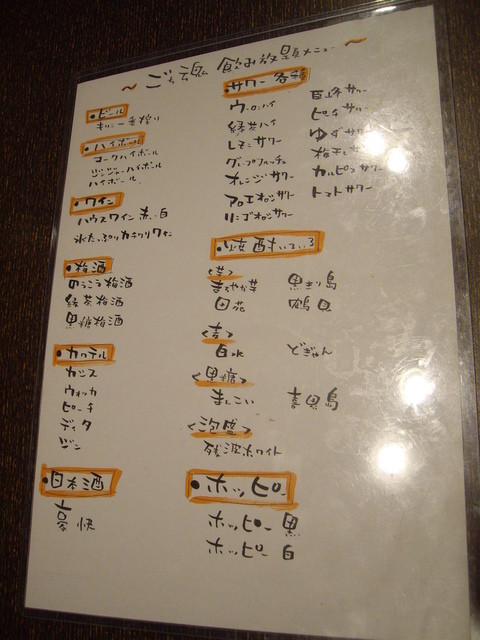 ～ごっ魂 飲み放題メニュー～
・ビール
キリン一番搾り
・ハイボール
コークハイボール
ジンジャーハイボール
ハイボール
・ワイン
ハウスワイン 赤・白
氷たっぷりカチワリワイン
・梅酒
のうこう梅酒
緑茶梅酒
黒糖梅酒
・カクテル
カシス
ウォッカ
ピーチ
ディタ
ジン
・日本酒
豪快
・サワー各種
ウーロンハイ
緑茶ハイ
レモンサワー
グレープフルーツ
オレンジサワー
アロエサワー
リンゴサワー
巨峰サワー
ピーチサワー
ゆずサワー
梅干しサワー
カルピスサワー
トマトサワー
・焼酎いろいろ
<芋>
まろやか芋 黒き島
田苑 鶴見
<麦>
白水 どぎゃん
<黒糖>
まんこい 喜界島
<泡盛>
残波ホワイト
・ホッピー
ホッピー 黒
ホッピー 白